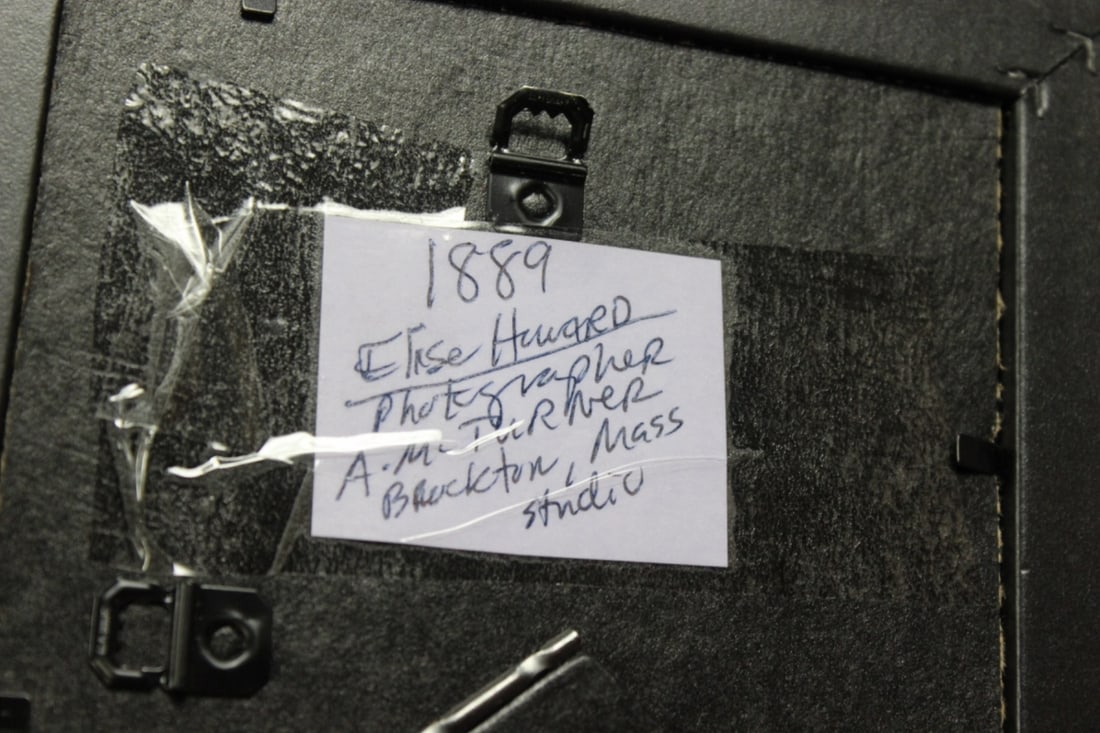 1889
Elise Howard
Photographer
A. Mc Turner
Brockton, Mass
studio